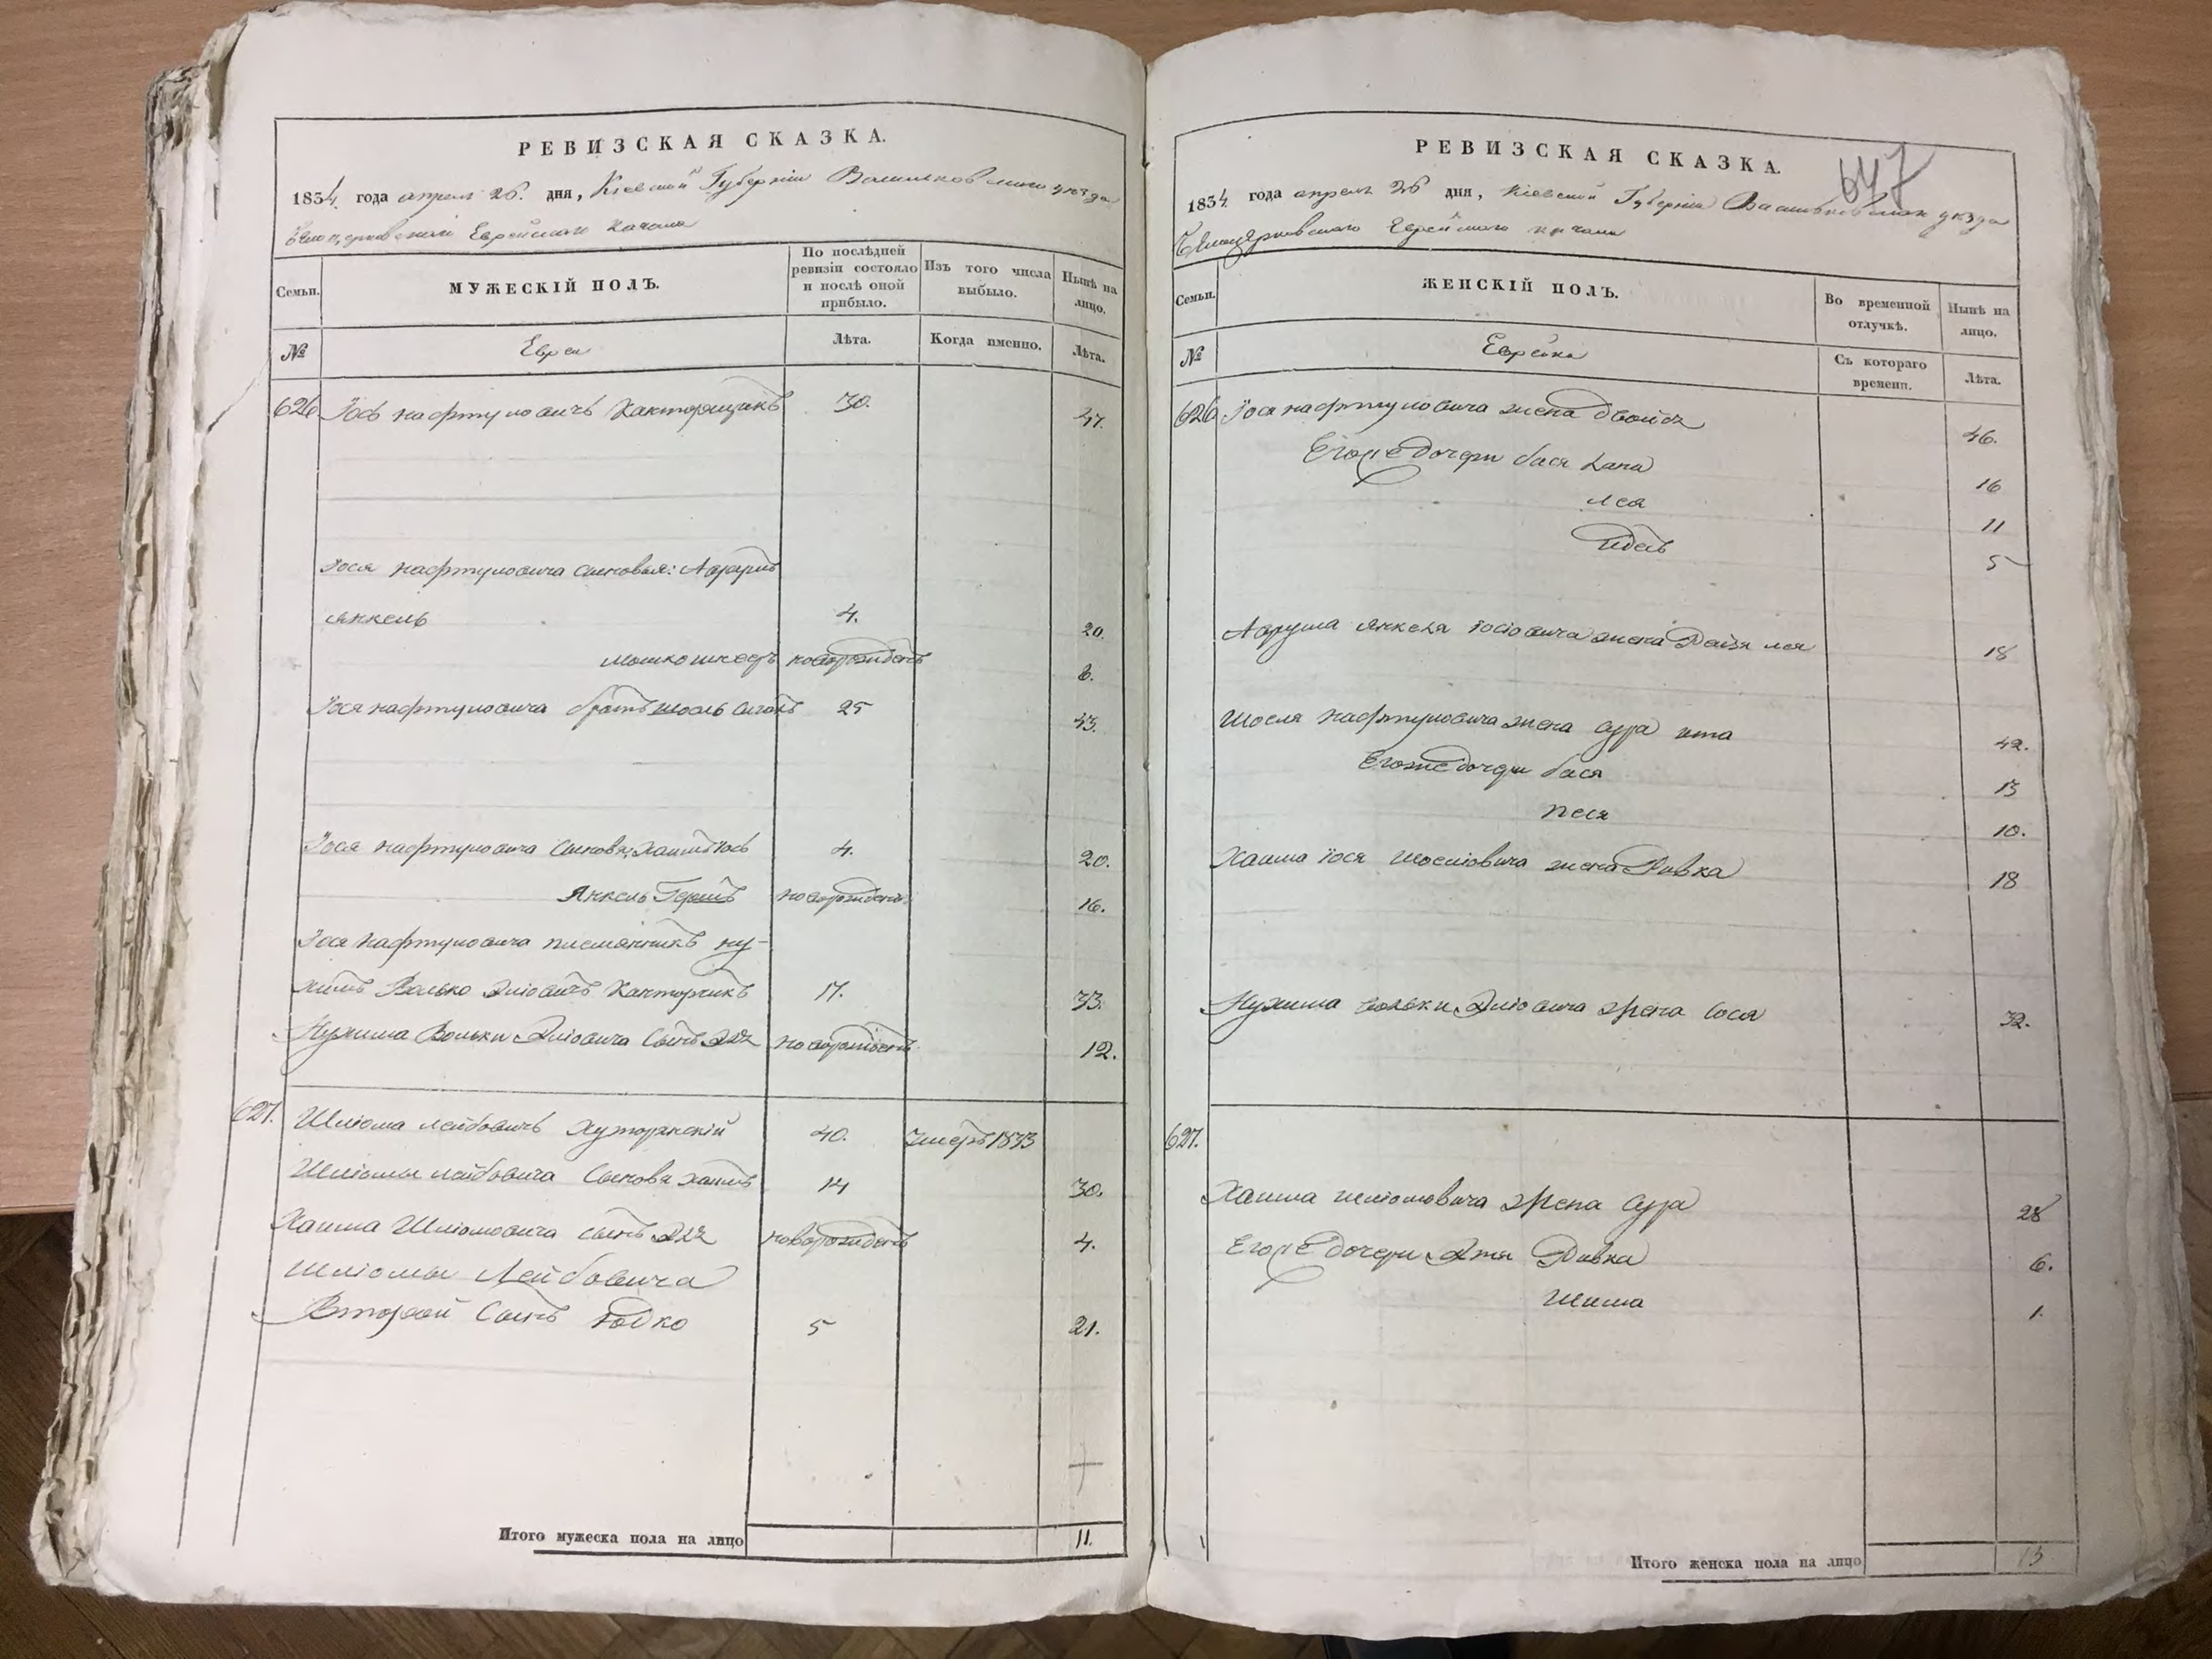 РЕВИЗСКАЯ СКАЗКА.
1834 года апреля 26. дня, Кіевской Губерніи Васильковскаго уезда
Белоцерковскаго Еврейскаго Кагала
Семьи.
МУЖЕСКІЙ ПОЛЪ.
По послѣдней ревизіи состояло и послѣ оной прибыло.
Изъ того числа выбыло.
Нынѣ на лицо.
№
Евреи
Лѣта.
Когда именно.
Лѣта.
626 Іось Нафтуловичъ Канторщикъ 30. 47.
Іося Нафтуловича сыновья: Аврумъ
Янкель 4. 20.
Мошко новорожденъ 8.
Іося Нафтуловича братъ Шоель 25 43.
Іося Нафтуловича сыновя: Хаимъ Іось 4. 20.
Янкель Гершъ новорожденъ 16.
Іося Нафтуловича племянникъ Ну-
химъ Волько Эліовичъ Канторщикъ 17. 33.
Нухима Вольки Эліовича сынъ новорожденъ 12.
627. Шліома Лейбовичъ Хуторянскій 40. Умеръ 1833
Шліомы Лейбовича сыновя Хаимъ 14 30.
Хаима Шліомовича сынъ новорожденъ 4.
Шліомы Лейбовича
Второй сынъ Юдко 5 21.
Итого мужеска пола на лицо 11.
647
РЕВИЗСКАЯ СКАЗКА.
1834 года апреля 26 дня, Кіевской Губерніи Васильковскаго уезда
Белоцерковскаго Еврейскаго Кагала
Семьи.
ЖЕНСКІЙ ПОЛЪ.
Во временной отлучкѣ.
Нынѣ на лицо.
№
Еврейки
Съ котораго времени.
Лѣта.
626 Іося Нафтуловича жена Двойся 46.
Его же дочери Бася Хана 16
Лея 11
Идесъ 5
Аврума Янкеля Іосіовича жена Рейзя Лея 18
Шоеля Нафтуловича жена Сура Ита 42.
Его же дочери Бася 13
Песя 10.
Хаима Іося Шоеліовича жена Ривка 18
Нухима Вольки Эліовича жена Сося 32.
627.
Хаима Шліомовича жена Сура 28
Его же дочери Этя Ривка 6.
Шима 1.
Итого женска пола на лицо 13